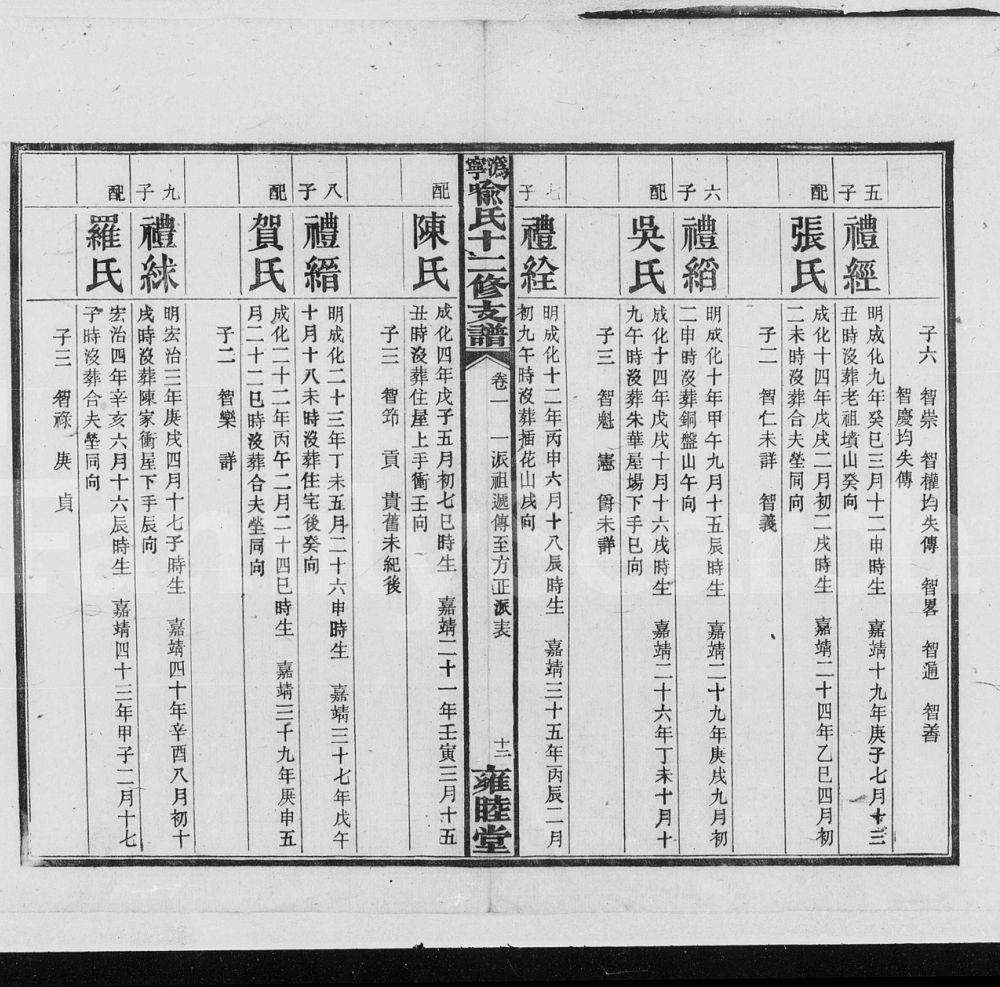 子六 智崇 智權均失傳 智畧 智通 智善
智慶均失傳
五子
禮經
明成化九年癸巳三月十二申時生 嘉靖十九年庚子七月十三
丑時沒葬老祖墳山癸向
配
張氏
成化十四年戊戌二月初二戌時生 嘉靖二十四年乙巳四月初
二未時沒葬合夫塋同向
子二 智仁未詳 智義
六子
禮縚
明成化十年甲午九月十五辰時生 嘉靖二十九年庚戌九月初
二申時沒葬銅盤山午向
配
吳氏
成化十四年戊戌十月十六戌時生 嘉靖二十六年丁未十月十
九午時沒葬朱華屋場下手巳向
子三 智魁 憲 爵未詳
七子
禮絟
明成化十二年丙申六月十八辰時生 嘉靖三十五年丙辰二月
初九午時沒葬插花山戌向
溈寧喻氏十二修支譜
卷一 一派祖遞傳至方正派表
十二
雍睦堂
配
陳氏
成化四年戊子五月初七巳時生 嘉靖二十一年壬寅三月十五
丑時沒葬住屋上手衝壬向
子三 智節 貢 貴舊未紀後
八子
禮縉
明成化二十三年丁未五月二十六申時生 嘉靖三十七年戊午
十月十八未時沒葬住宅後癸向
配
賀氏
成化二十二年丙午二月二十四巳時生 嘉靖三十九年庚申五
月二十二巳時沒葬合夫塋同向
子二 智樂 詳
九子
禮絿
明宏治三年庚戌四月十七子時生 嘉靖四十年辛酉八月初十
戌時沒葬陳家衝屋下手辰向
配
羅氏
宏治四年辛亥六月十六辰時生 嘉靖四十三年甲子二月十七
子時沒葬合夫塋同向
子三 智祿 庚 貞